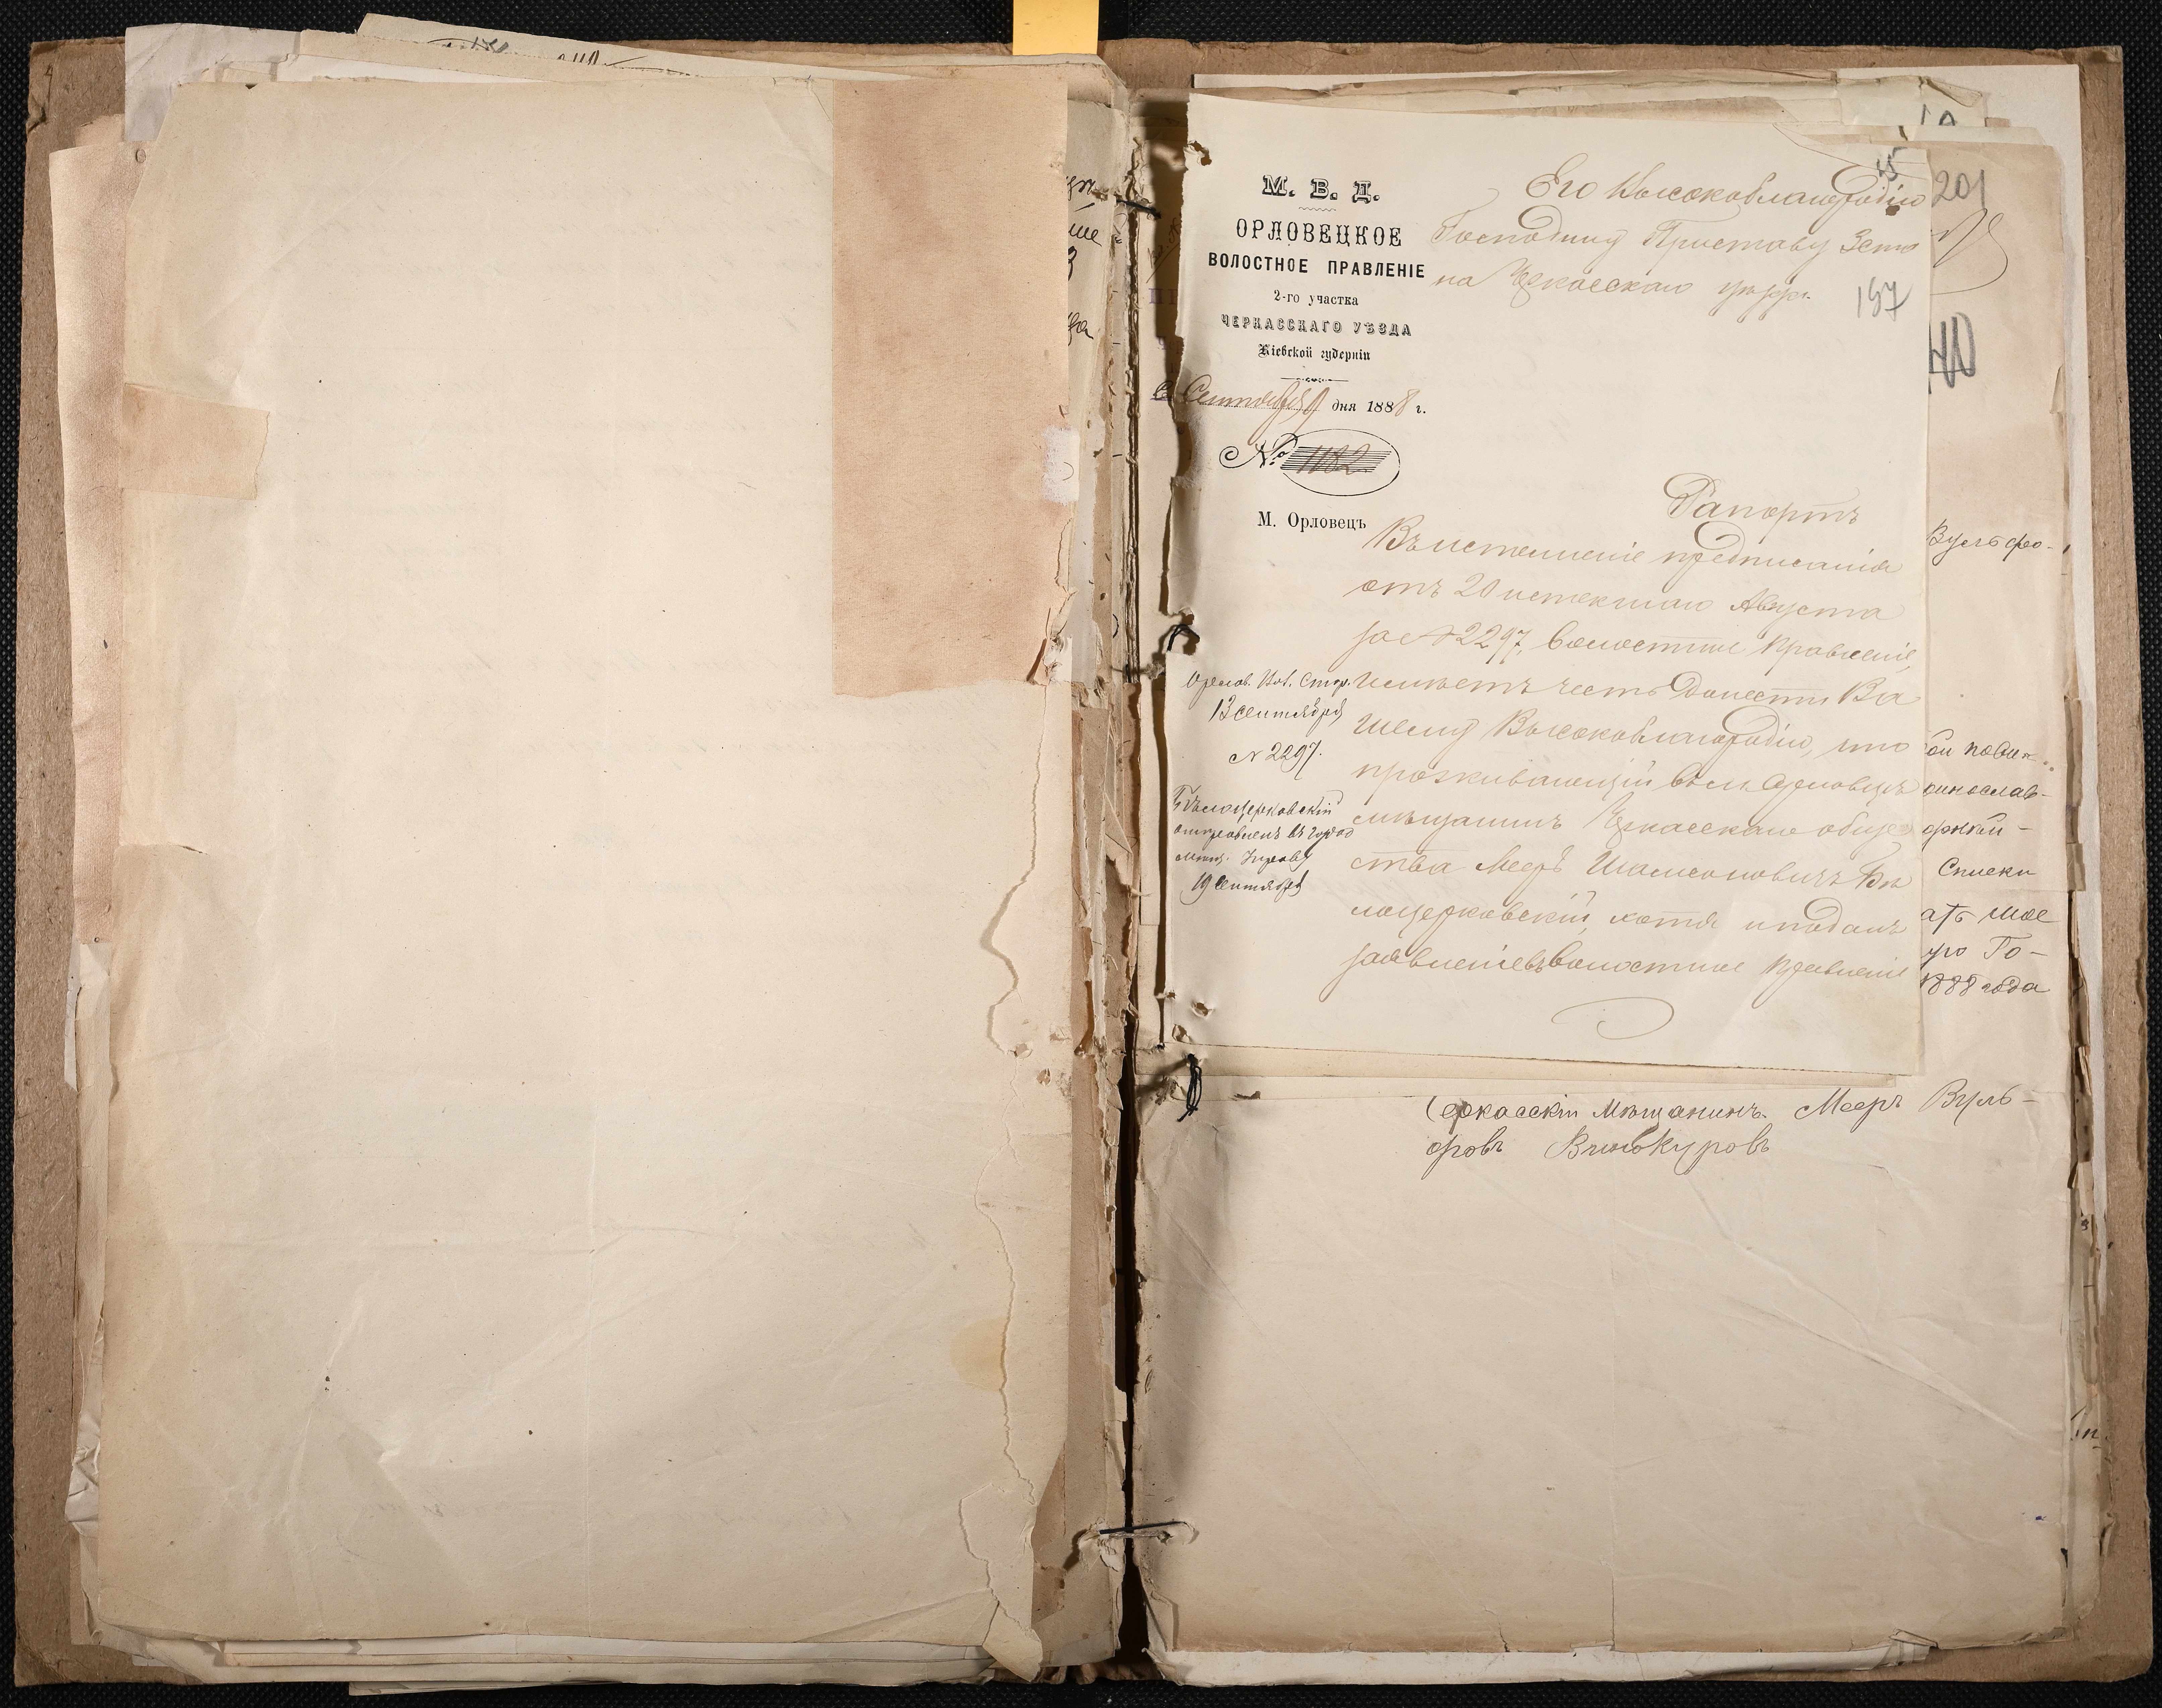 М. В. Д.
ОРЛОВЕЦКОЕ
ВОЛОСТНОЕ ПРАВЛЕНІЕ
2-го участка
ЧЕРКАССКАГО УѢЗДА
Кіевской губерніи
Сентября 9 дня 1888 г.
№ 1182
М. Орловецъ
Его Высокоблагородію
Господину Приставу 3 ста
на Черкасскаго уѣзда.
45
201
197
40
Рапортъ
Въ исполненіе предписанія
отъ 20 истекшаго Августа
за № 2297, волостное правленіе,
имѣетъ честь донести Ва
шему Высокоблагородію, что
проживающій въ м. Орловцѣ
мѣщанинъ Черкасскаго обще
ства Мееръ Шамсоновичъ Бѣ
лоцерковскій, хотя и подалъ
заявленіе въ волостное правленіе
13 Сентября
№ 2297.
Бѣлоцерковскій
отправленъ въ город
19 Сентября
Вульфо-
Списки
ать мое
ро Го-
1888 года
Черкасскій Мѣщанинъ Мееръ Вуль-
фовъ Винокуровъ